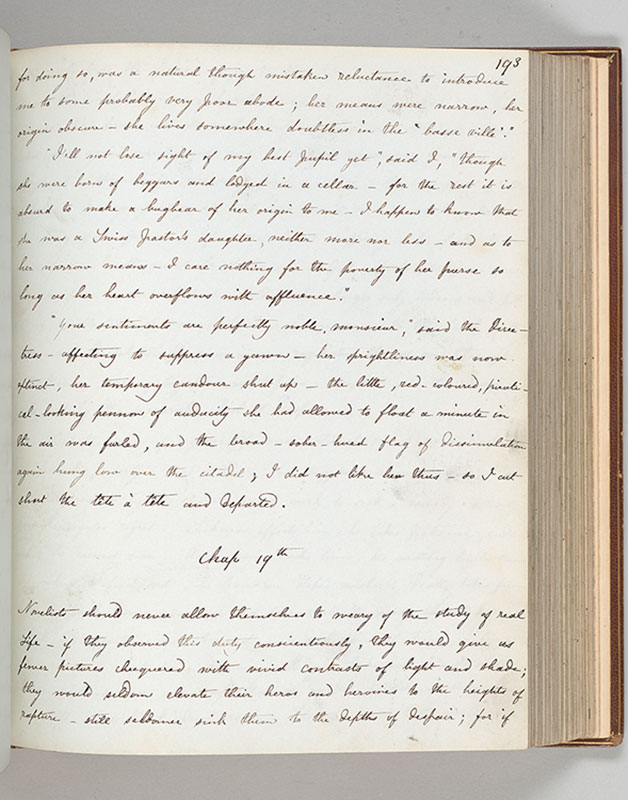 193
for doing so, was a natural though mistaken reluctance to introduce
me to some probably very poor abode ; her means were narrow, her
origin obscure – she lives somewhere doubtless in the "basse ville"."
"I'll not lose sight of my best pupil yet", said I, "though
she were born of beggars and lodged in a cellar – for the rest it is
absurd to make a bugbear of her origin to me – I happen to know that
she was a Swiss pastor's daughter, neither more nor less – and as to
her narrow means – I care nothing for the poverty of her purse so
long as her heart overflows with affluence."
"Your sentiments are perfectly noble, monsieur," said the Direc-
tress – affecting to suppress a yawn – her sprightliness was now
extinct, her temporary candour shut up – the little, red-coloured, pirati-
cal-looking pennon of audacity she had allowed to float a minute in
the air was furled, and the broad – sober-hued flag of dissimulation
again hung low over the citadel ; I did not like her thus – so I cut
short the tête à tête and departed.
Chap 19th
Novelists should never allow themselves to weary of the study of real
Life – if they observed this duty conscientiously, they would give us
fewer pictures chequered with vivid contrasts of light and shade;
they would seldom elevate their heros and heroines to the heights of
rapture – still seldomer sink them to the depths of despair; for if